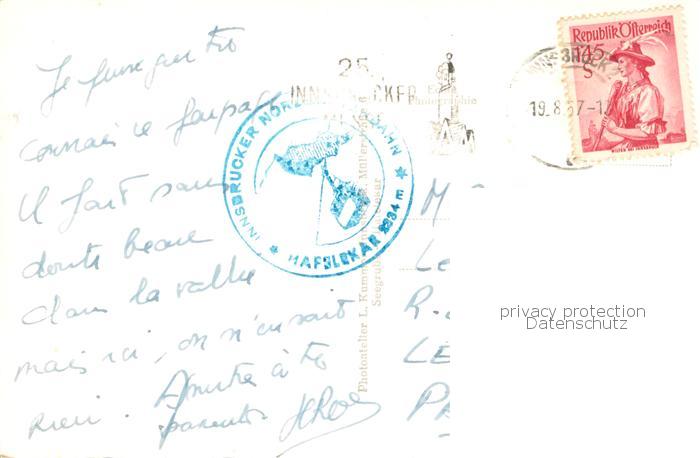 Je pense que tu
connais ce paysage
Il fait sans
doute beau
dans la vallée
mais ici, on n'en voit
rien. Amitié à tes
parents.
25.
INNSBRUCKER
INNSBRUCKER NORDKETTENBAHN
HAFELEKAR 2334 m
Photoatelier L. Kumm Müllerstraße
Seegrube Hafelekar
Republik Österreich
1.45
S
INNSBRUCK
19.8.57-1
M
Le
R.
LE
PA
privacy protection
Datenschutz